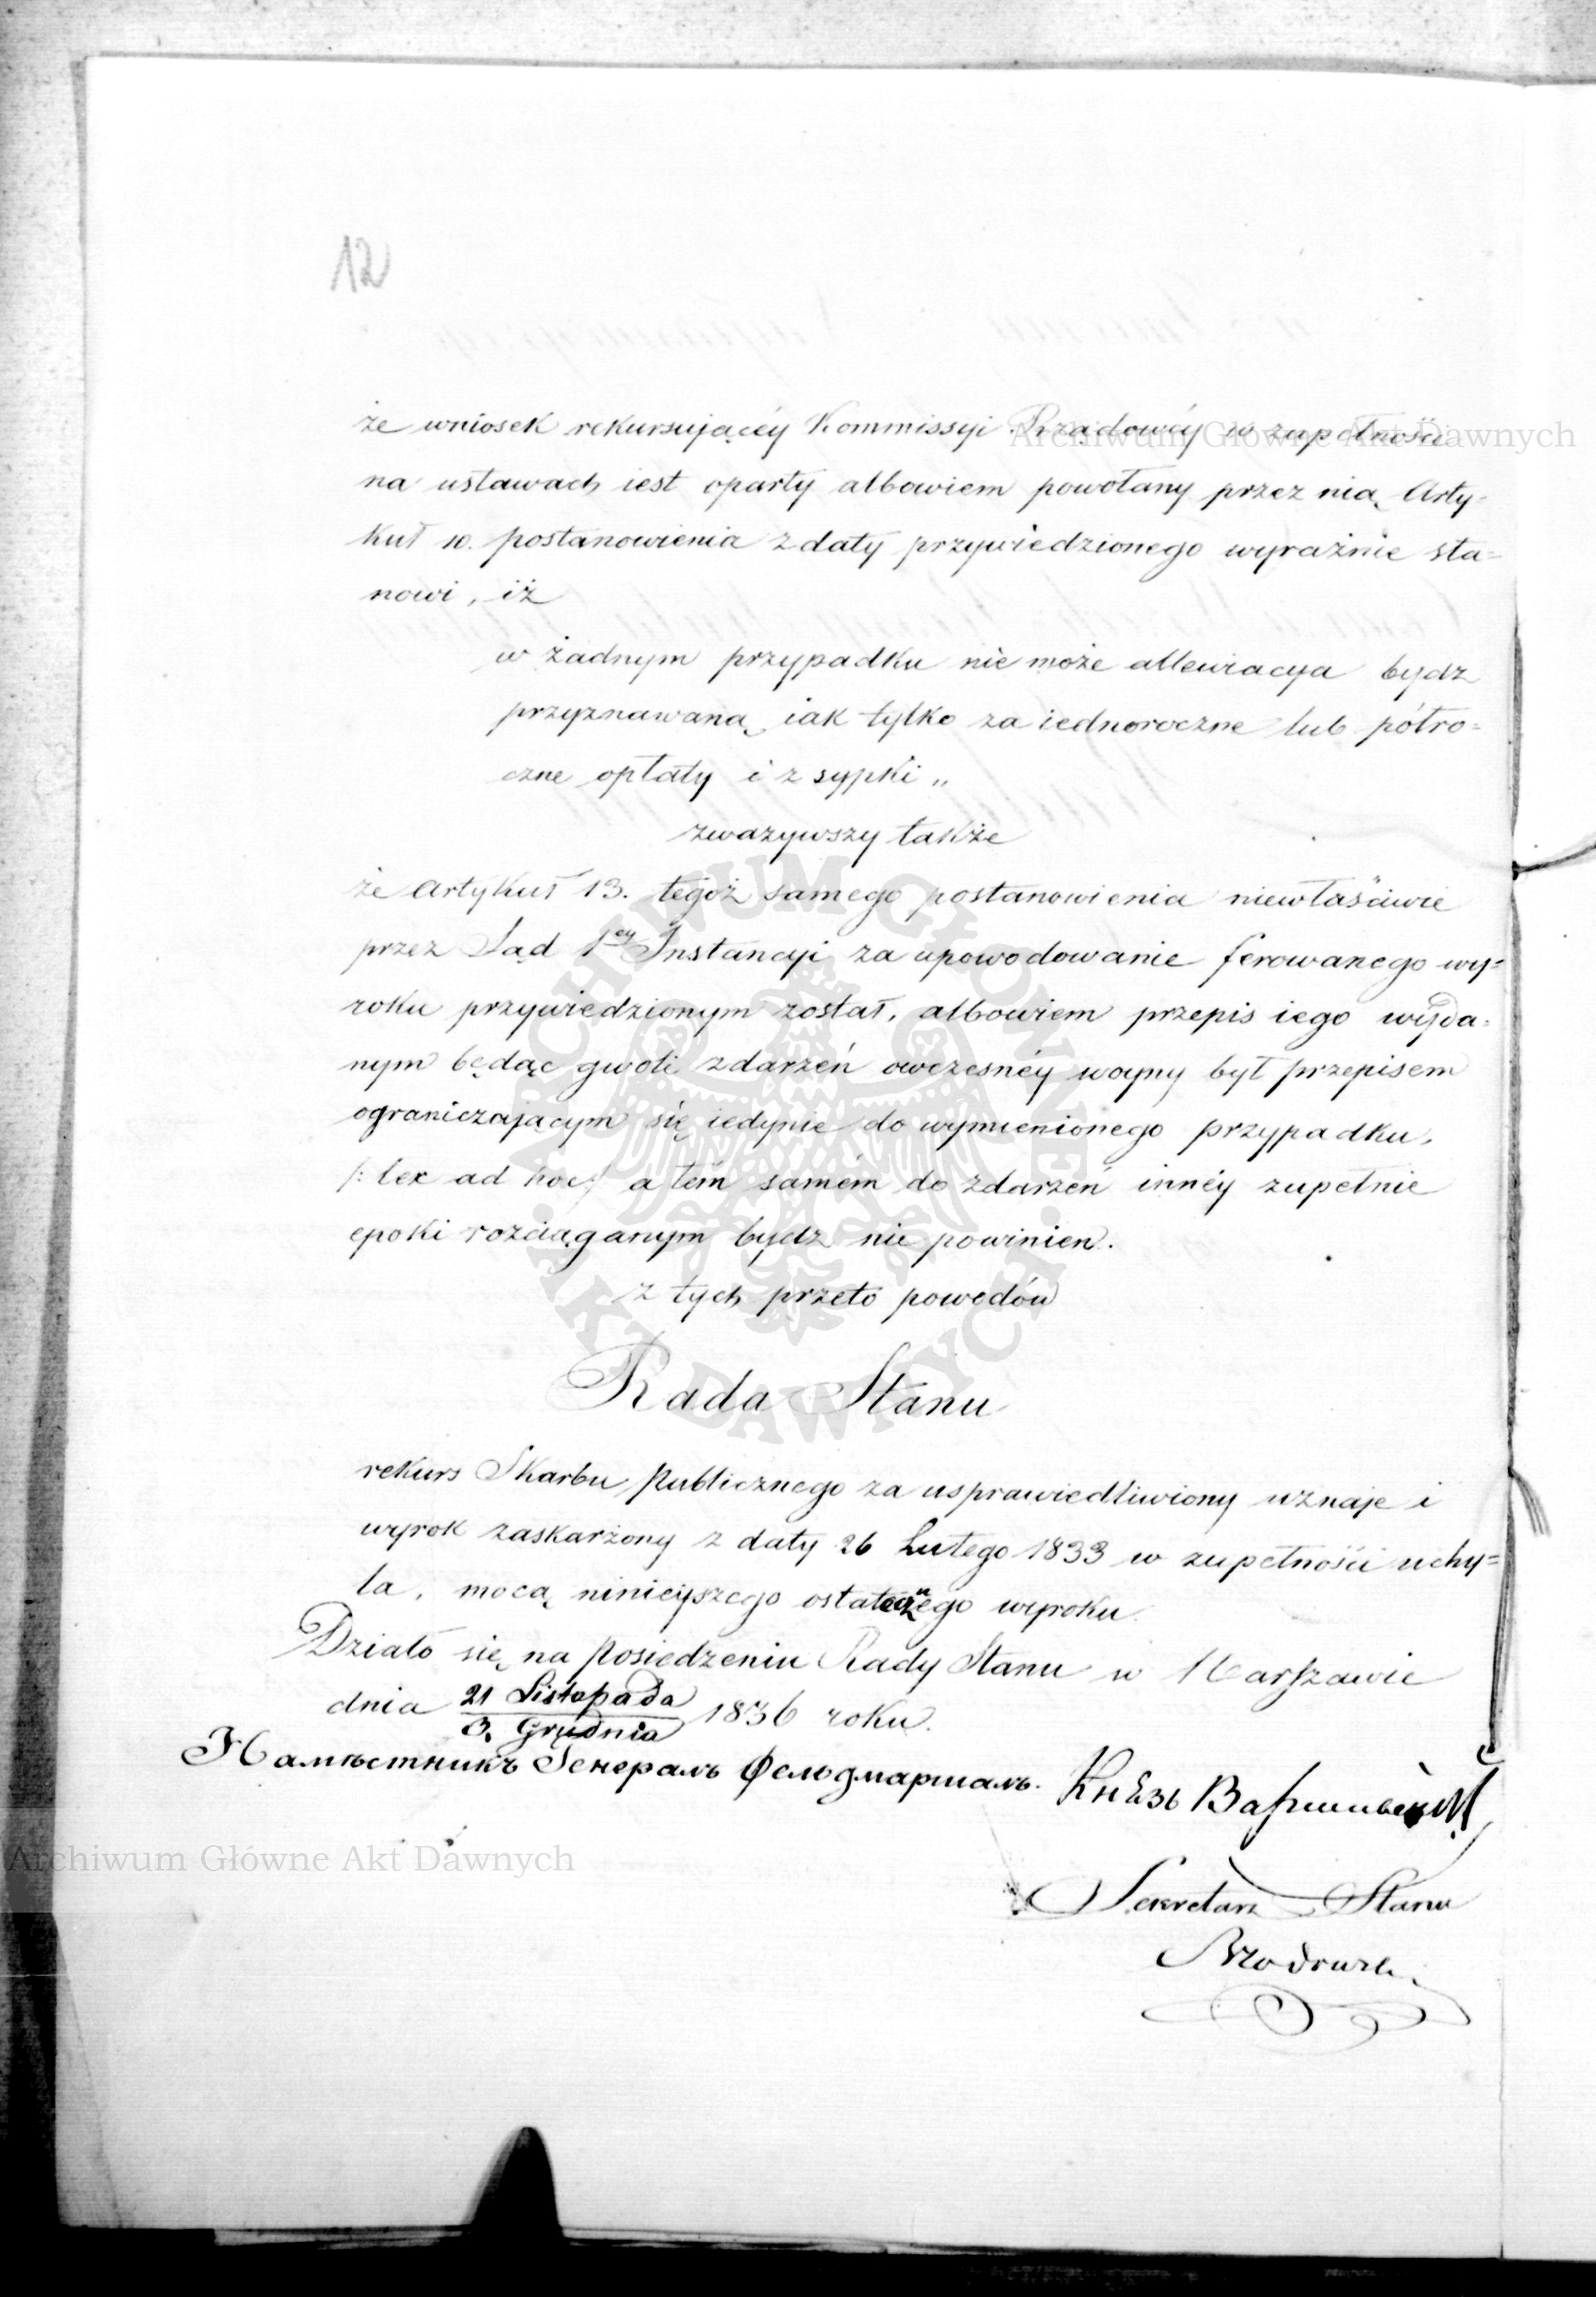 12
że wniosek rekursującéy Kommissyi Rządowéy w zupełności
na ustawach iest oparty albowiem powołany przez nią Arty-
kuł 10. postanowienia z daty przywiedzionego wyraźnie sta=
nowi, iż
w żadnym przypadku nie może allewiacya bydz
przyznawaną iak tylko za iednoroczne lub półro=
czne opłaty i zsypki „
zważywszy także
że Artykuł 13. tegoż samego postanowienia niewłaściwie
przez Sąd 1ey Instancyi za upowodowanie ferowanego wy=
roku przywiedzionym został, albowiem przepis iego wyda=
nym będąc gwoli zdarzeń owczesnéy woyny był przepisem
ograniczającym się iedynie do wymienionego przypadku,
/: lex ad hoc :/ a tém samém do zdarzeń innéy zupełnie
epoki rozciąganym bydz nie powinien.
z tych przeto powodów
Rada Stanu
rekurs Skarbu Publicznego za usprawiedliwiony uznaje i
wyrok zaskarżony z daty 26 Lutego 1833 w zupełności uchy=
la, mocą ninieyszego ostatecznego wyroku.
Działo się na Posiedzeniu Rady Stanu w Warszawie
dnia 21 Listopada / 3. Grudnia 1836 roku.
Намѣстникъ Генералъ Фельдмаршалъ. Князь Варшавскій
Sekretarz Stanu
Archiwum Główne Akt Dawnych
Archiwum Główne Akt Dawnych
ARCHIWUM GŁÓWNE
AKT DAWNYCH